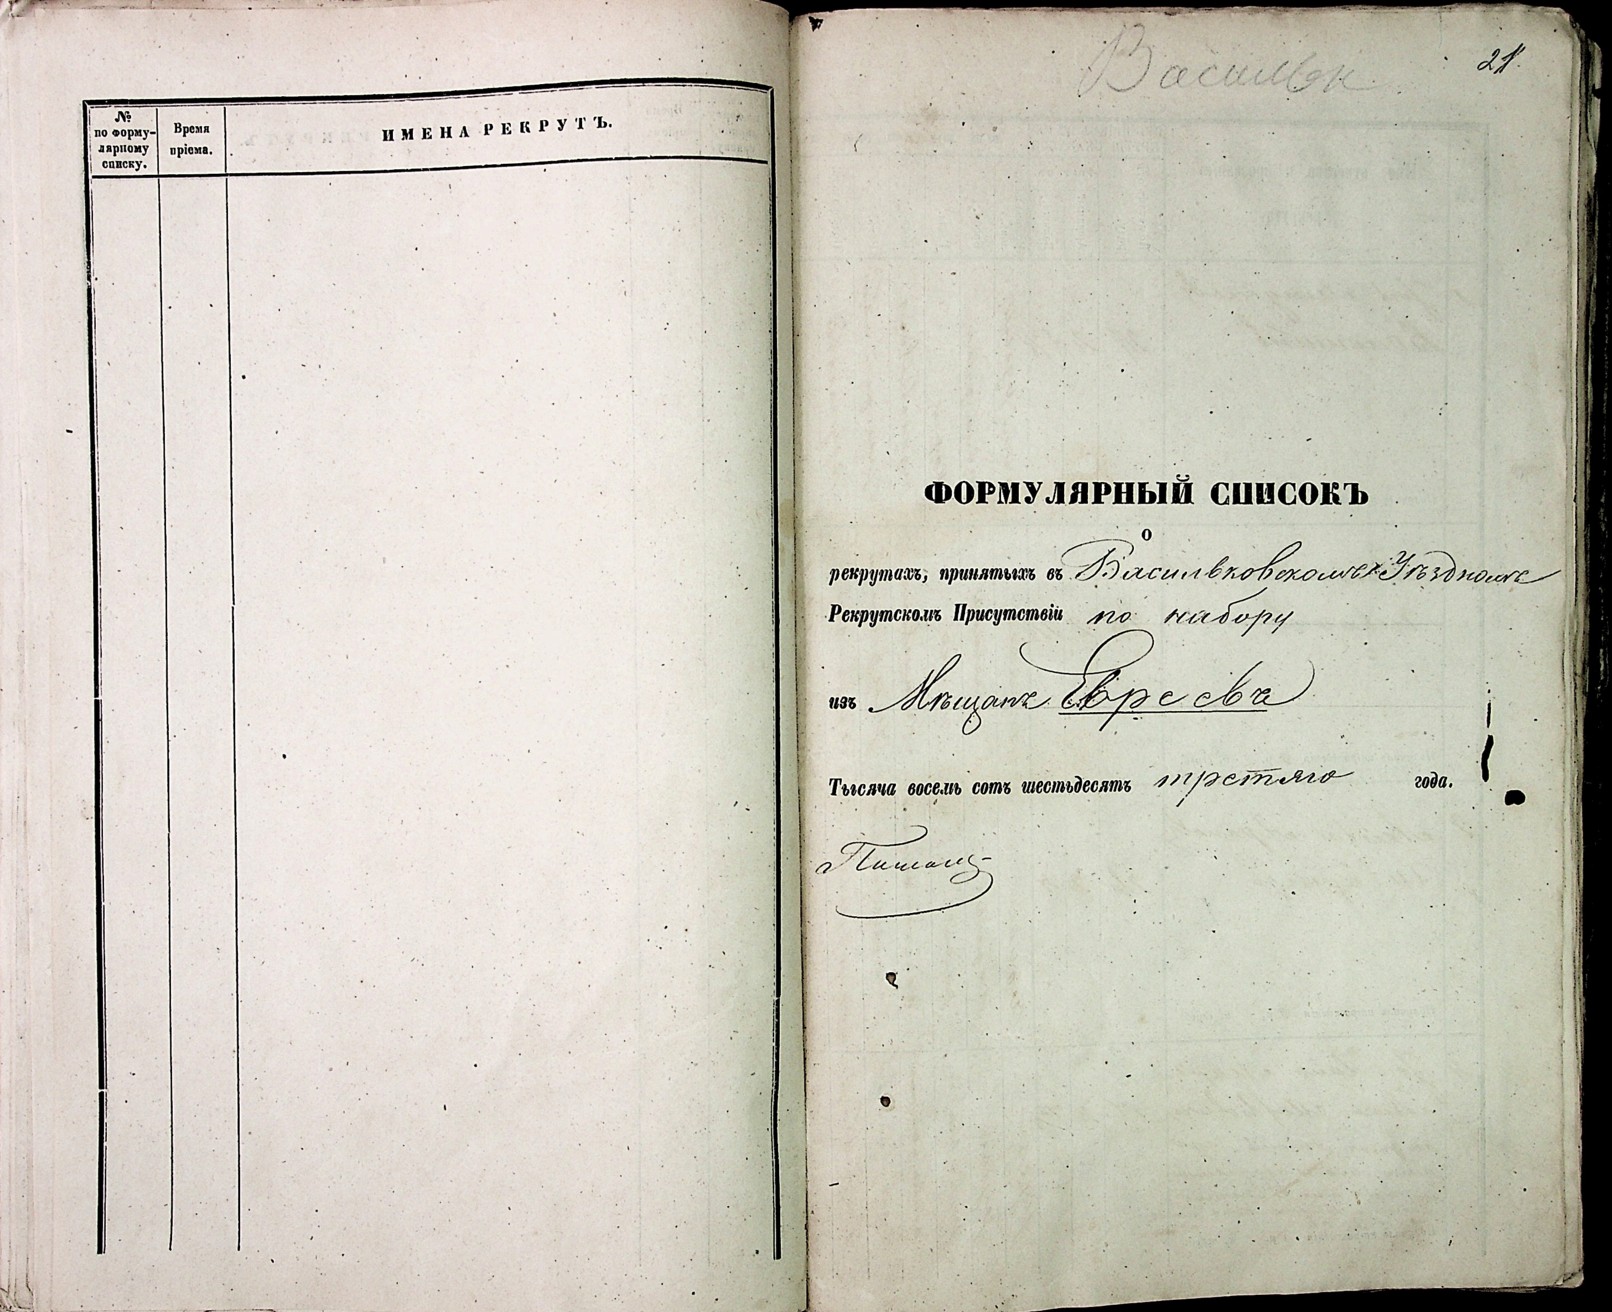 №
по форму-
лярному
списку.
Время
пріема.
ИМЕНА РЕКРУТЪ.
Васильк
21
ФОРМУЛЯРНЫЙ СПИСОКЪ
о
рекрутахъ, принятыхъ въ Васильковскомъ Уѣздномъ
Рекрутскомъ Присутствіи по набору
изъ Мѣщанъ Евреевъ
Тысяча восемь сотъ шестьдесятъ третяго года.